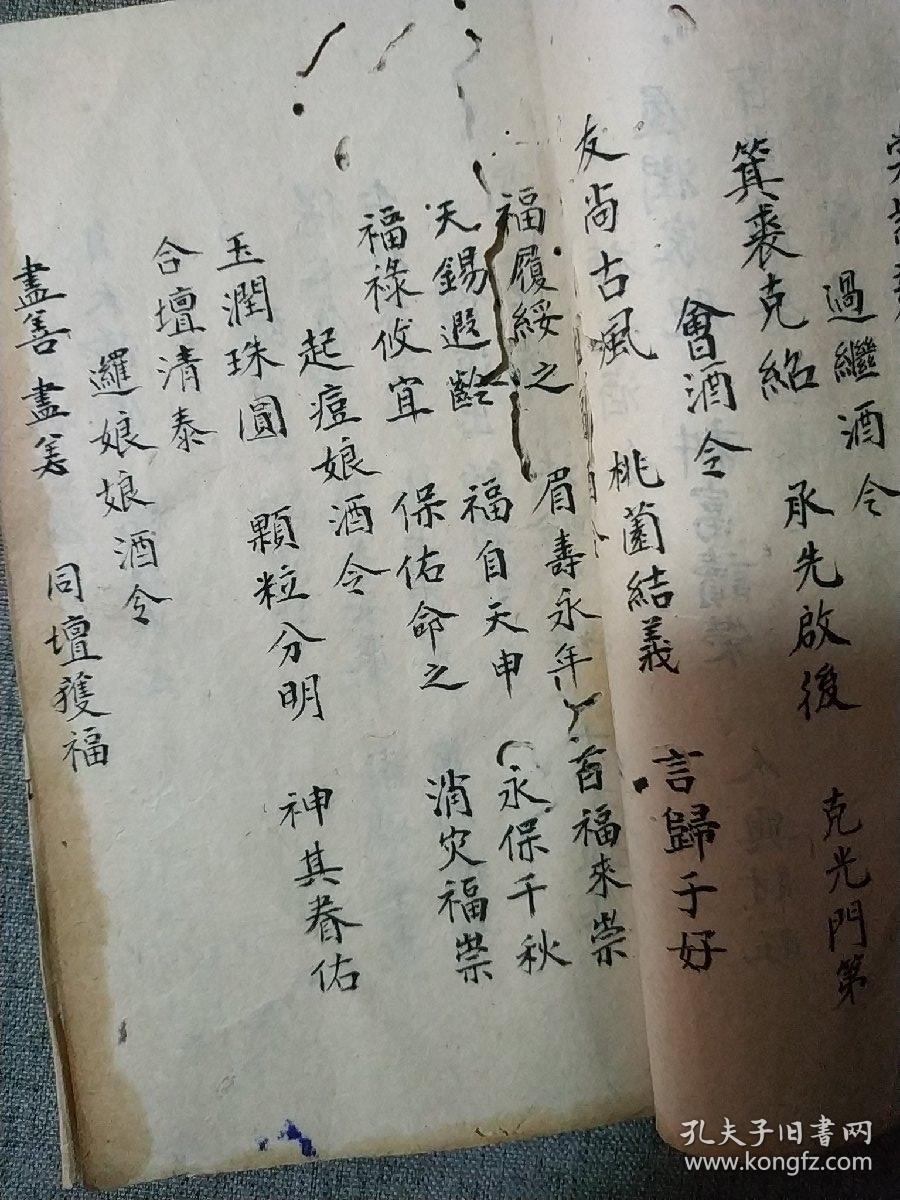 過繼酒令
箕裘克紹 承先啟後 克光門第
會酒令
友尚古風 桃薗結義 言歸于好
福履綏之 眉壽永年 百福來崇
天錫遐齡 福自天申 永保千秋
福祿攸宜 保佑命之 消灾福崇
起痘娘酒令
玉潤珠圓 顆粒分明 神其眷佑
合壇清泰
邏娘娘酒令
盡善盡美 同壇獲福
孔夫子旧书网
www.kongfz.com